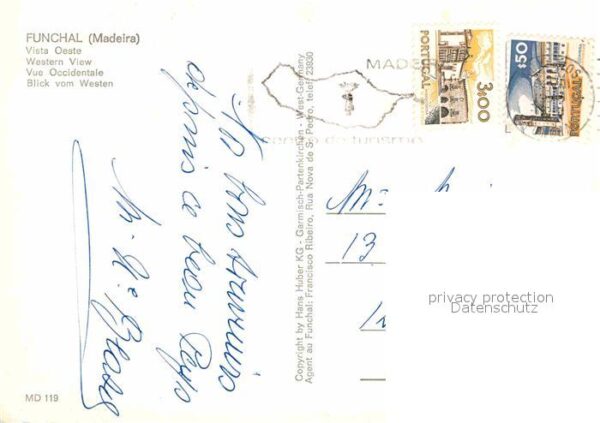 FUNCHAL (Madeira)
Vista Oeste
Western View
Vue Occidentale
Blick vom Westen
MADE
centro de turismo
PORTUGAL
3$00
$50
PORTUGAL
depuis ce beau Pays
M.
13
Copyright by Hans Huber KG - Garmisch-Partenkirchen - West-Germany
Agent au Funchal: Francisco Ribeiro, Rua Nova de S. Pedro, telef. 23930
privacy protection
Datenschutz
MD 119